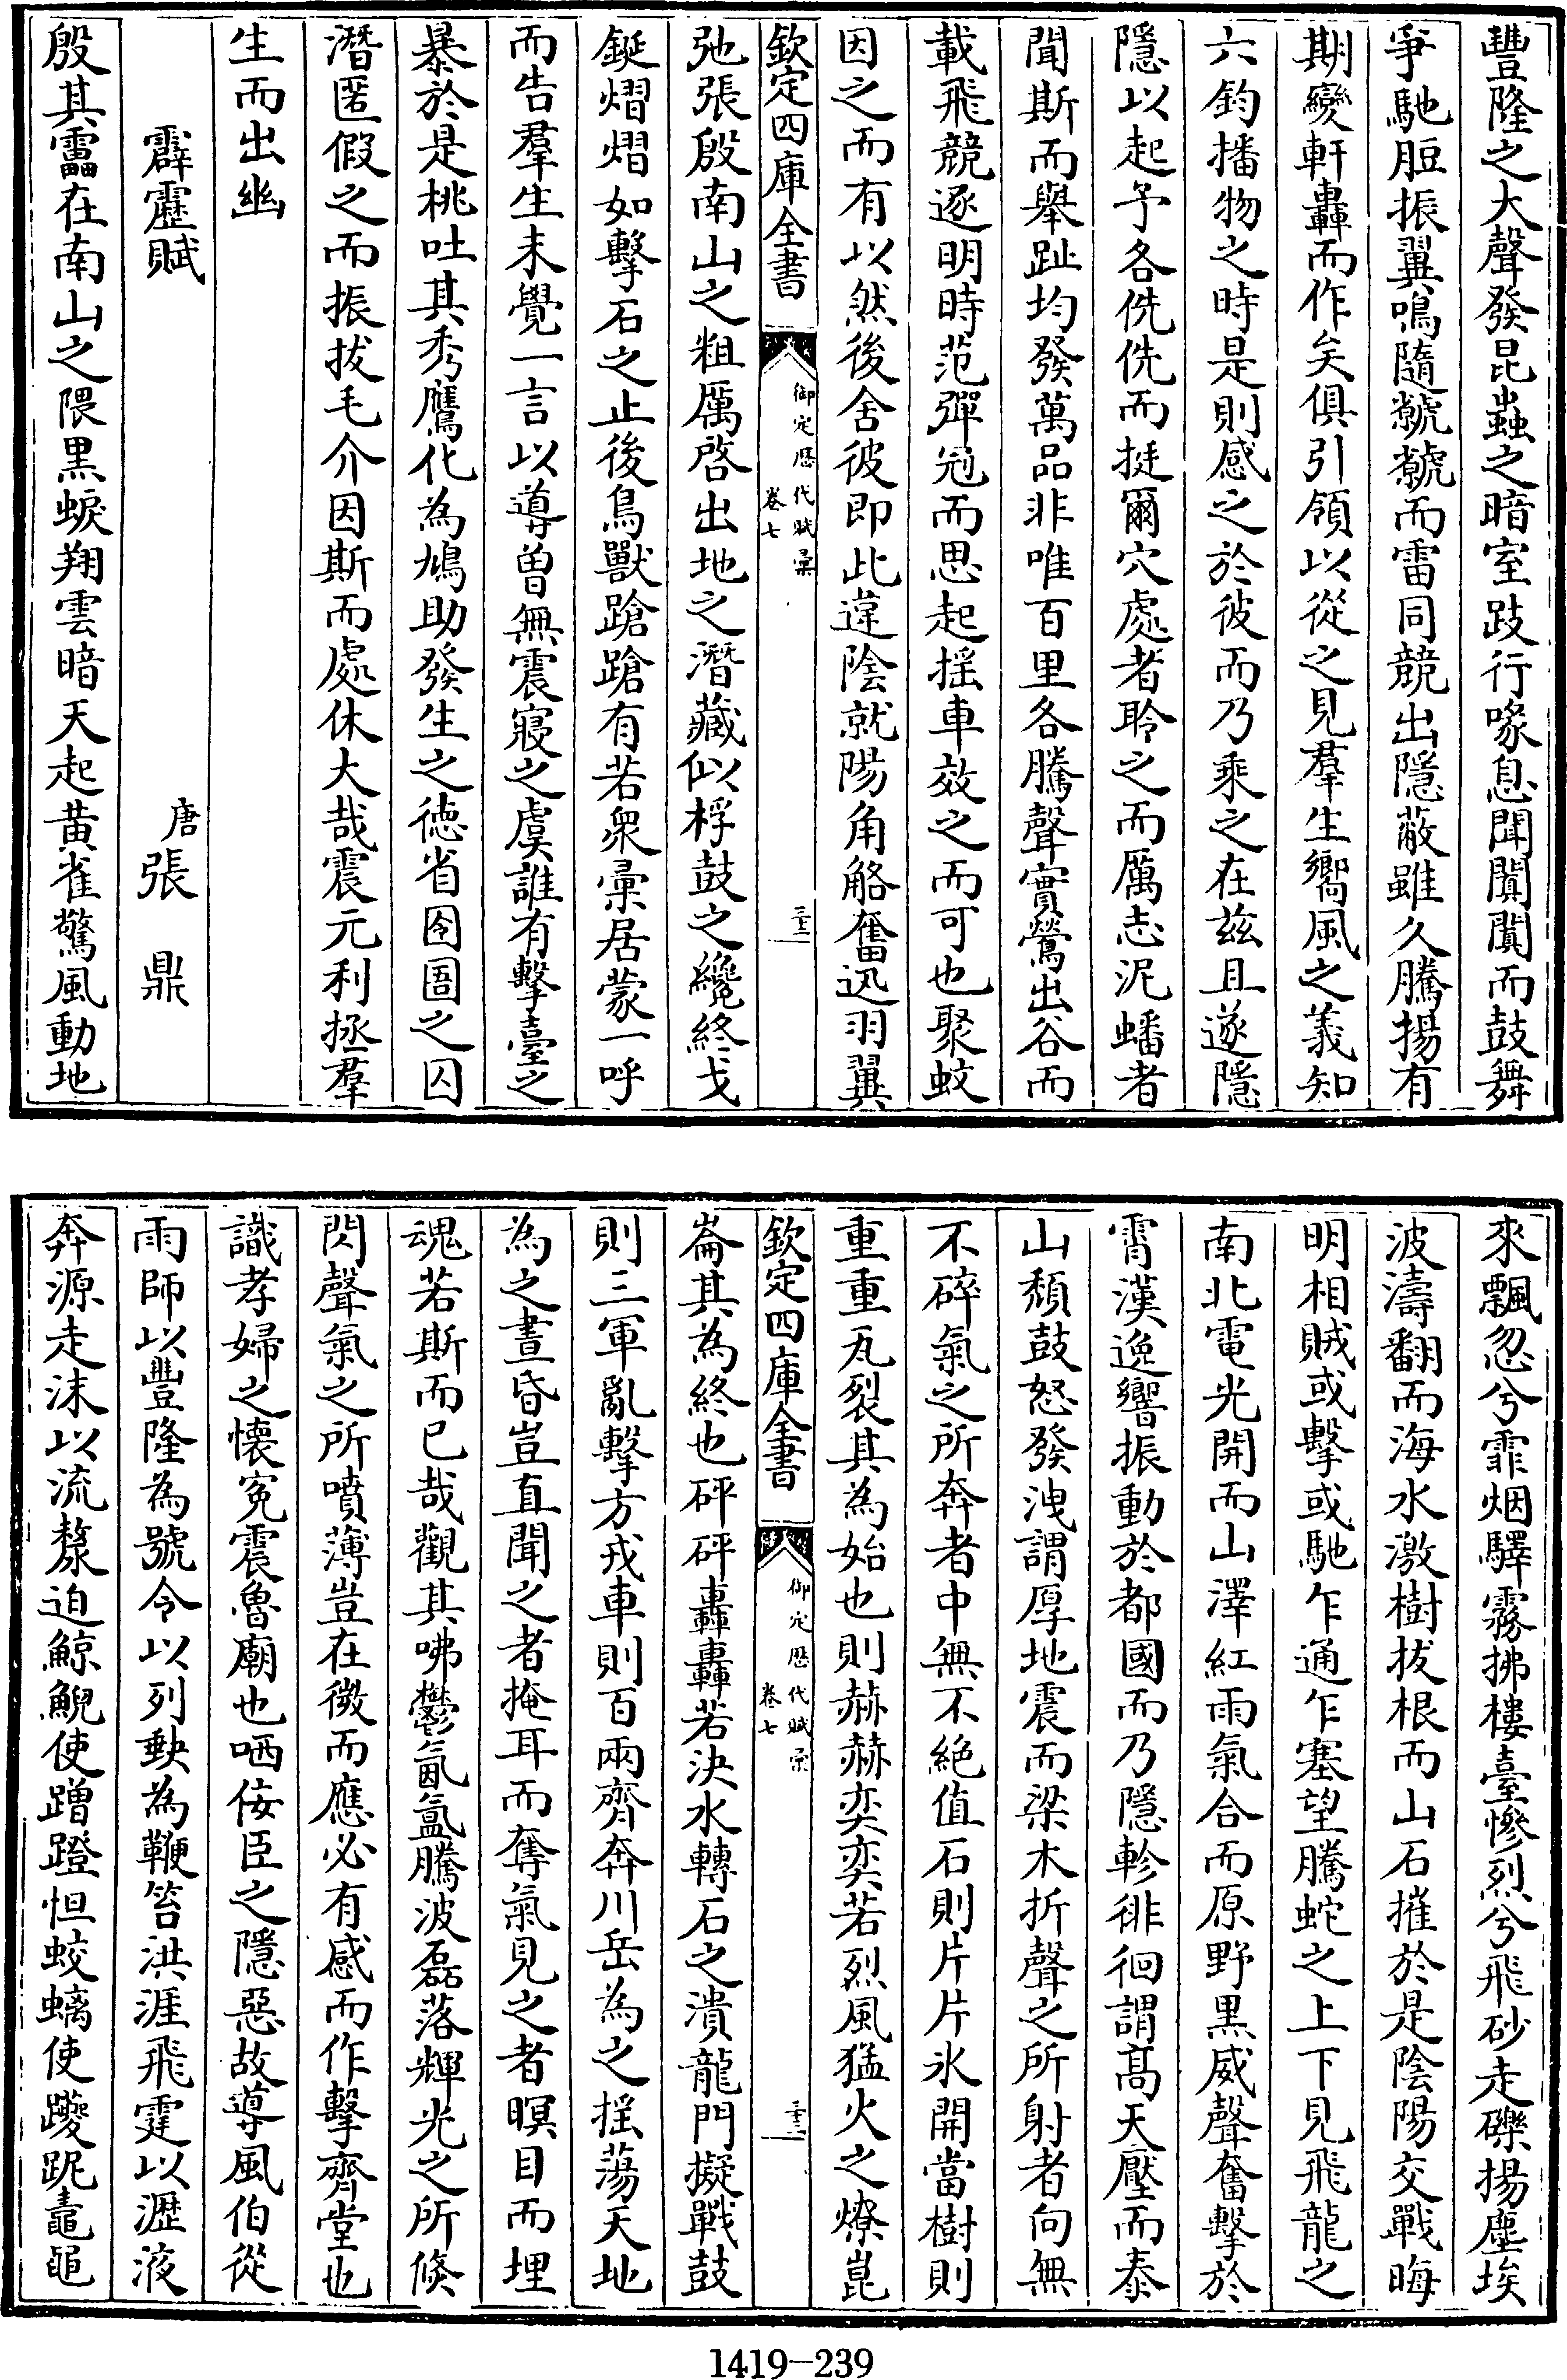 豐隆之大聲發昆蟲之暗室跂行喙息聞闐闐而鼓舞
爭馳脰振翼鳴隨虩虩而雷同競出隱蔽雖久騰揚有
期纔軒轟而作矣俱引領以從之見羣生嚮風之義知
六鈞播物之時是則感之於彼而乃乘之在茲且遂隱
隱以起予各侁侁而挺爾穴處者聆之而厲志泥蟠者
聞斯而舉趾均發萬品非唯百里各騰聲實鶯出谷而
載飛競逐明時范彈冠而思起揺車效之而可也聚蚊
因之而有以然後舍彼即此違陰就陽角觡奮迅羽翼
欽定四庫全書
御定歷代賦彙
卷七
三十二
弛張殷南山之粗厲啓出地之潛藏似桴鼓之纔終戈
鋋熠熠如擊石之止後鳥獸蹌蹌有若衆彙居蒙一呼
而告羣生未覺一言以導曽無震寢之虞誰有擊臺之
暴於是桃吐其秀鷹化為鳩助發生之徳省囹圄之囚
潛匿假之而振拔毛介因斯而處休大哉震元利拯羣
生而出幽
霹靂賦
唐張　鼎
殷其靁在南山之隈黒蜧翔雲暗天起黄雀驚風動地
來飄忽兮霏烟驛霧拂樓臺慘烈兮飛砂走礫揚塵埃
波濤翻而海水激樹拔根而山石摧於是陰陽交戰晦
明相賊或擊或馳乍通乍塞望騰蛇之上下見飛龍之
南北電光開而山澤紅雨氣合而原野黒威聲奮擊於
霄漢逸響振動於都國而乃隱軫徘徊謂髙天壓而泰
山頽鼓怒發洩謂厚地震而梁木折聲之所射者向無
不碎氣之所奔者中無不絶值石則片片氷開當樹則
重重瓦裂其為始也則赫赫奕奕若烈風猛火之燎崑
欽定四庫全書
御定歷代賦彙
卷七
三十三
崙其為終也砰砰轟轟若決水轉石之潰龍門擬戰鼓
則三軍亂擊方戎車則百兩齊奔川岳為之揺蕩天地
為之晝昏豈直聞之者掩耳而奪氣見之者暝目而埋
魂若斯而已哉觀其咈鬱氤氳騰波磊落輝光之所倏
閃聲氣之所噴薄豈在微而應必有感而作擊齊堂也
識孝婦之懐寃震魯廟也哂佞臣之隱惡故導風伯從
雨師以豐隆為號令以列缺為鞭笞洪涯飛霆以瀝液
奔源走沫以流漦迫鯨鯢使蹭蹬怛蛟螭使躨跜鼃黽
1419-239